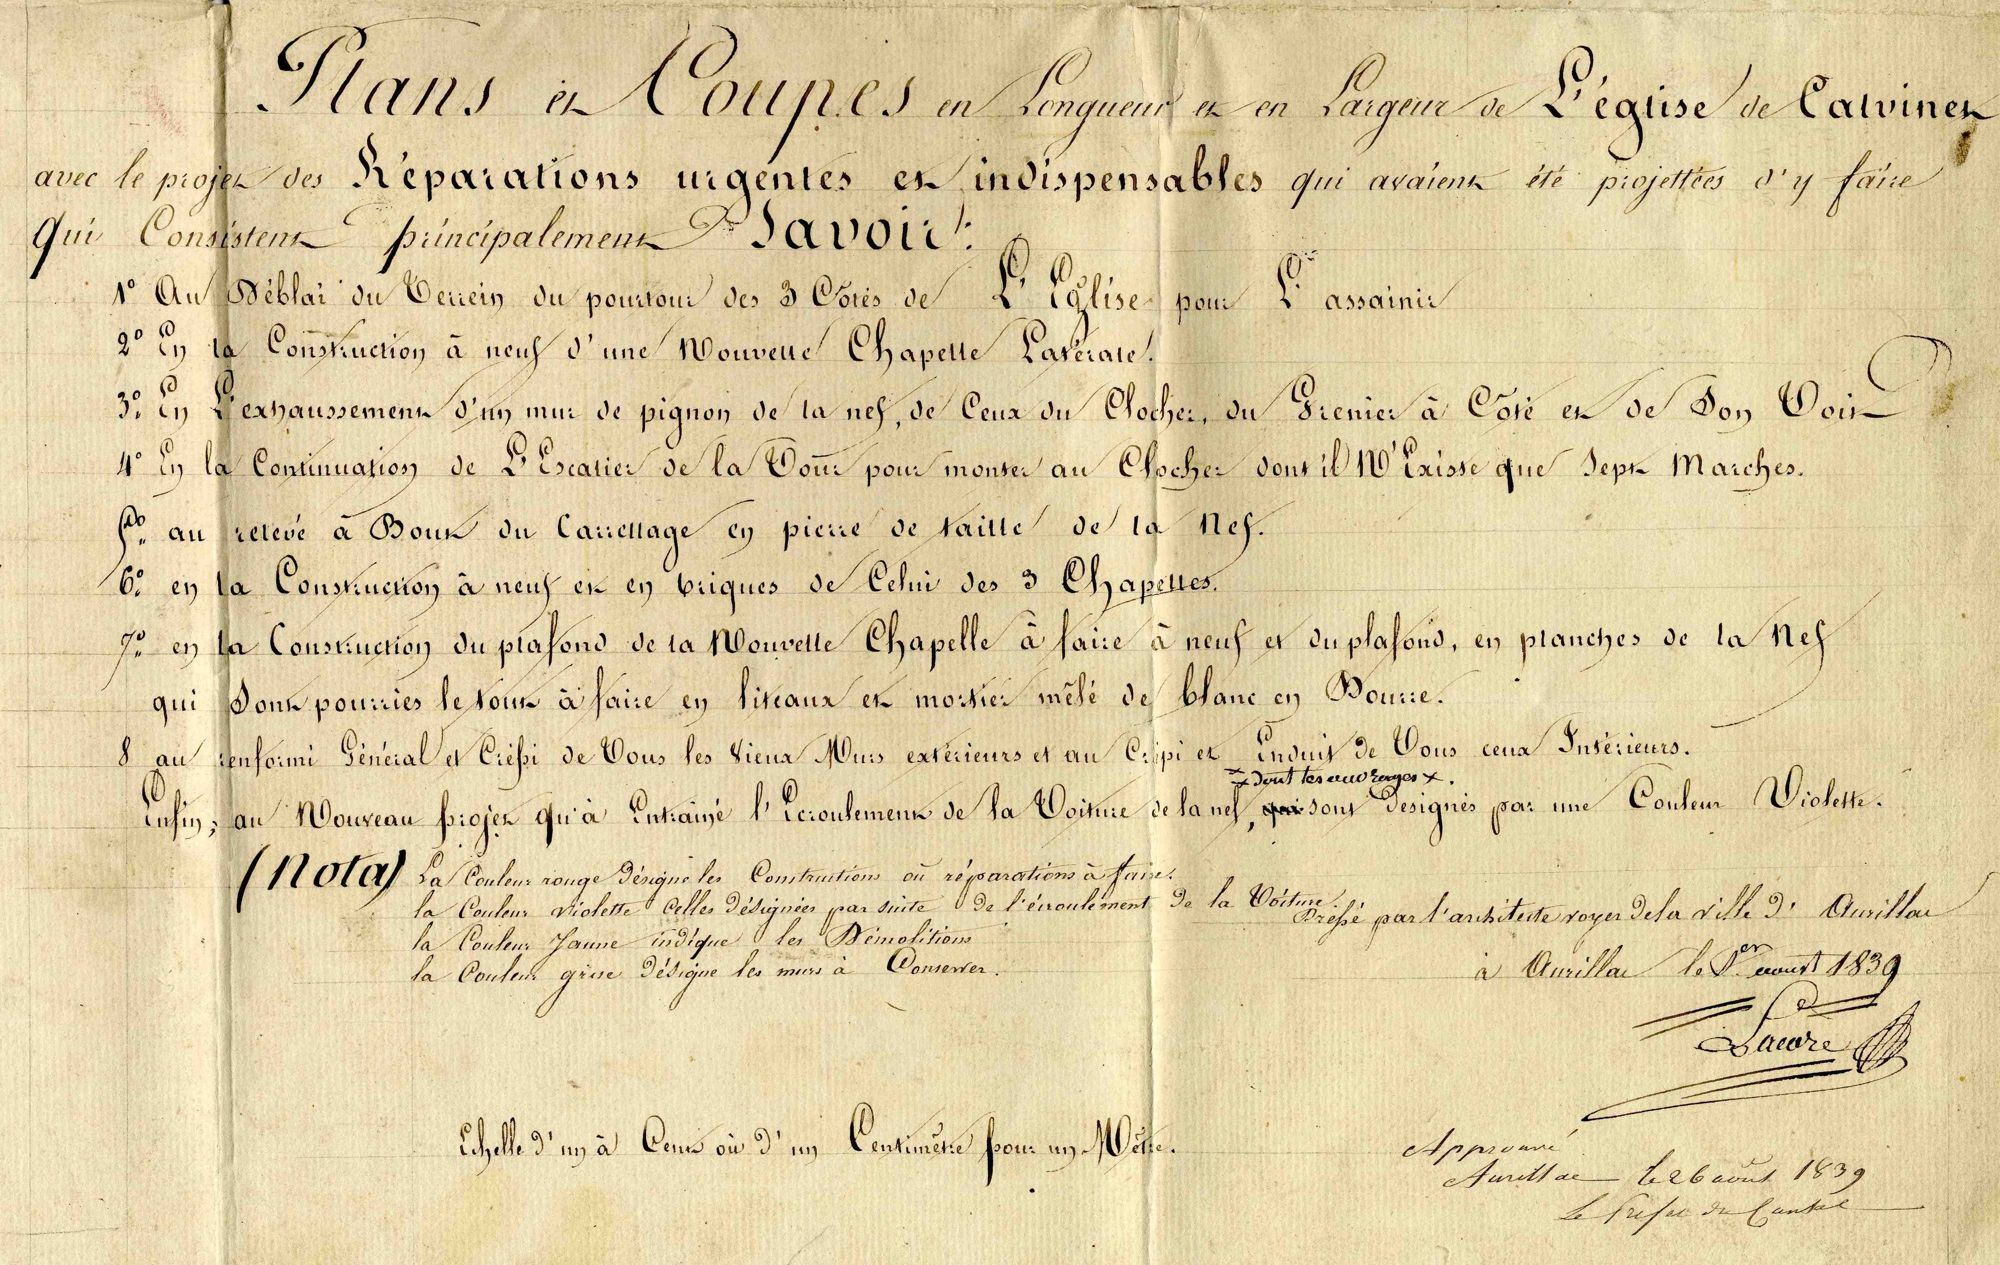 Plans et Coupes en Longueur et en Largeur de L'église de Calvinet
avec le projet des Réparations urgentes et indispensables qui avaient été projettées d'y faire
Qui Consistent principalement Savoir:
1° Au Déblai du Terrein du pourtour des 3 Côtés de L'Eglise pour L'assainir
2° En la Construction à neuf d'une Nouvelle Chapelle Latérale.
3° En L'exhaussement d'un mur de pignon de la nef, de Ceux du Clocher, du Grenier à Côté et de Son Toit
4° En la Continuation de L'Escalier de la Tour pour monter au Clocher dont il N'Existe que Sept Marches.
5° au relevé à Bout du Carrellage en pierre de taille de la Nef.
6° en la Construction à neuf et en briques de Celui des 3 Chapelles.
7° en la Construction du plafond de la Nouvelle Chapelle à faire à neuf et du plafond, en planches de la Nef
qui Sont pourries le tout à faire en liteaux et mortier mêlé de blanc en Bourre.
8 au renformi Général et Crépi de Tous les vieux Murs extérieurs et au Crépi et Enduit de Tous ceux Intérieurs.
x dont les ouvrages x.
Enfin, au Nouveau projet qu'à Entrainé l'Ecroulement de la Toiture de la nef, qui sont Designés par une Couleur Violette.
(Nota) La Couleur rouge Désigne les Constructions où réparations à faire.
la Couleur violette celles Désignées par suite de l'écroulement de la Toiture.
la Couleur Jaune indique les Démolitions
la Couleur grise Désigne les murs à Conserver.
Dressé par l'architecte voyer de la ville d'Aurillac
à Aurillac le 1er aoust 1839
Lacore
Echelle d'un à Cent où d'un Centimètre pour un Mètre.
Approuvé
Aurillac le 26 août 1839
Le Préfet du Cantal